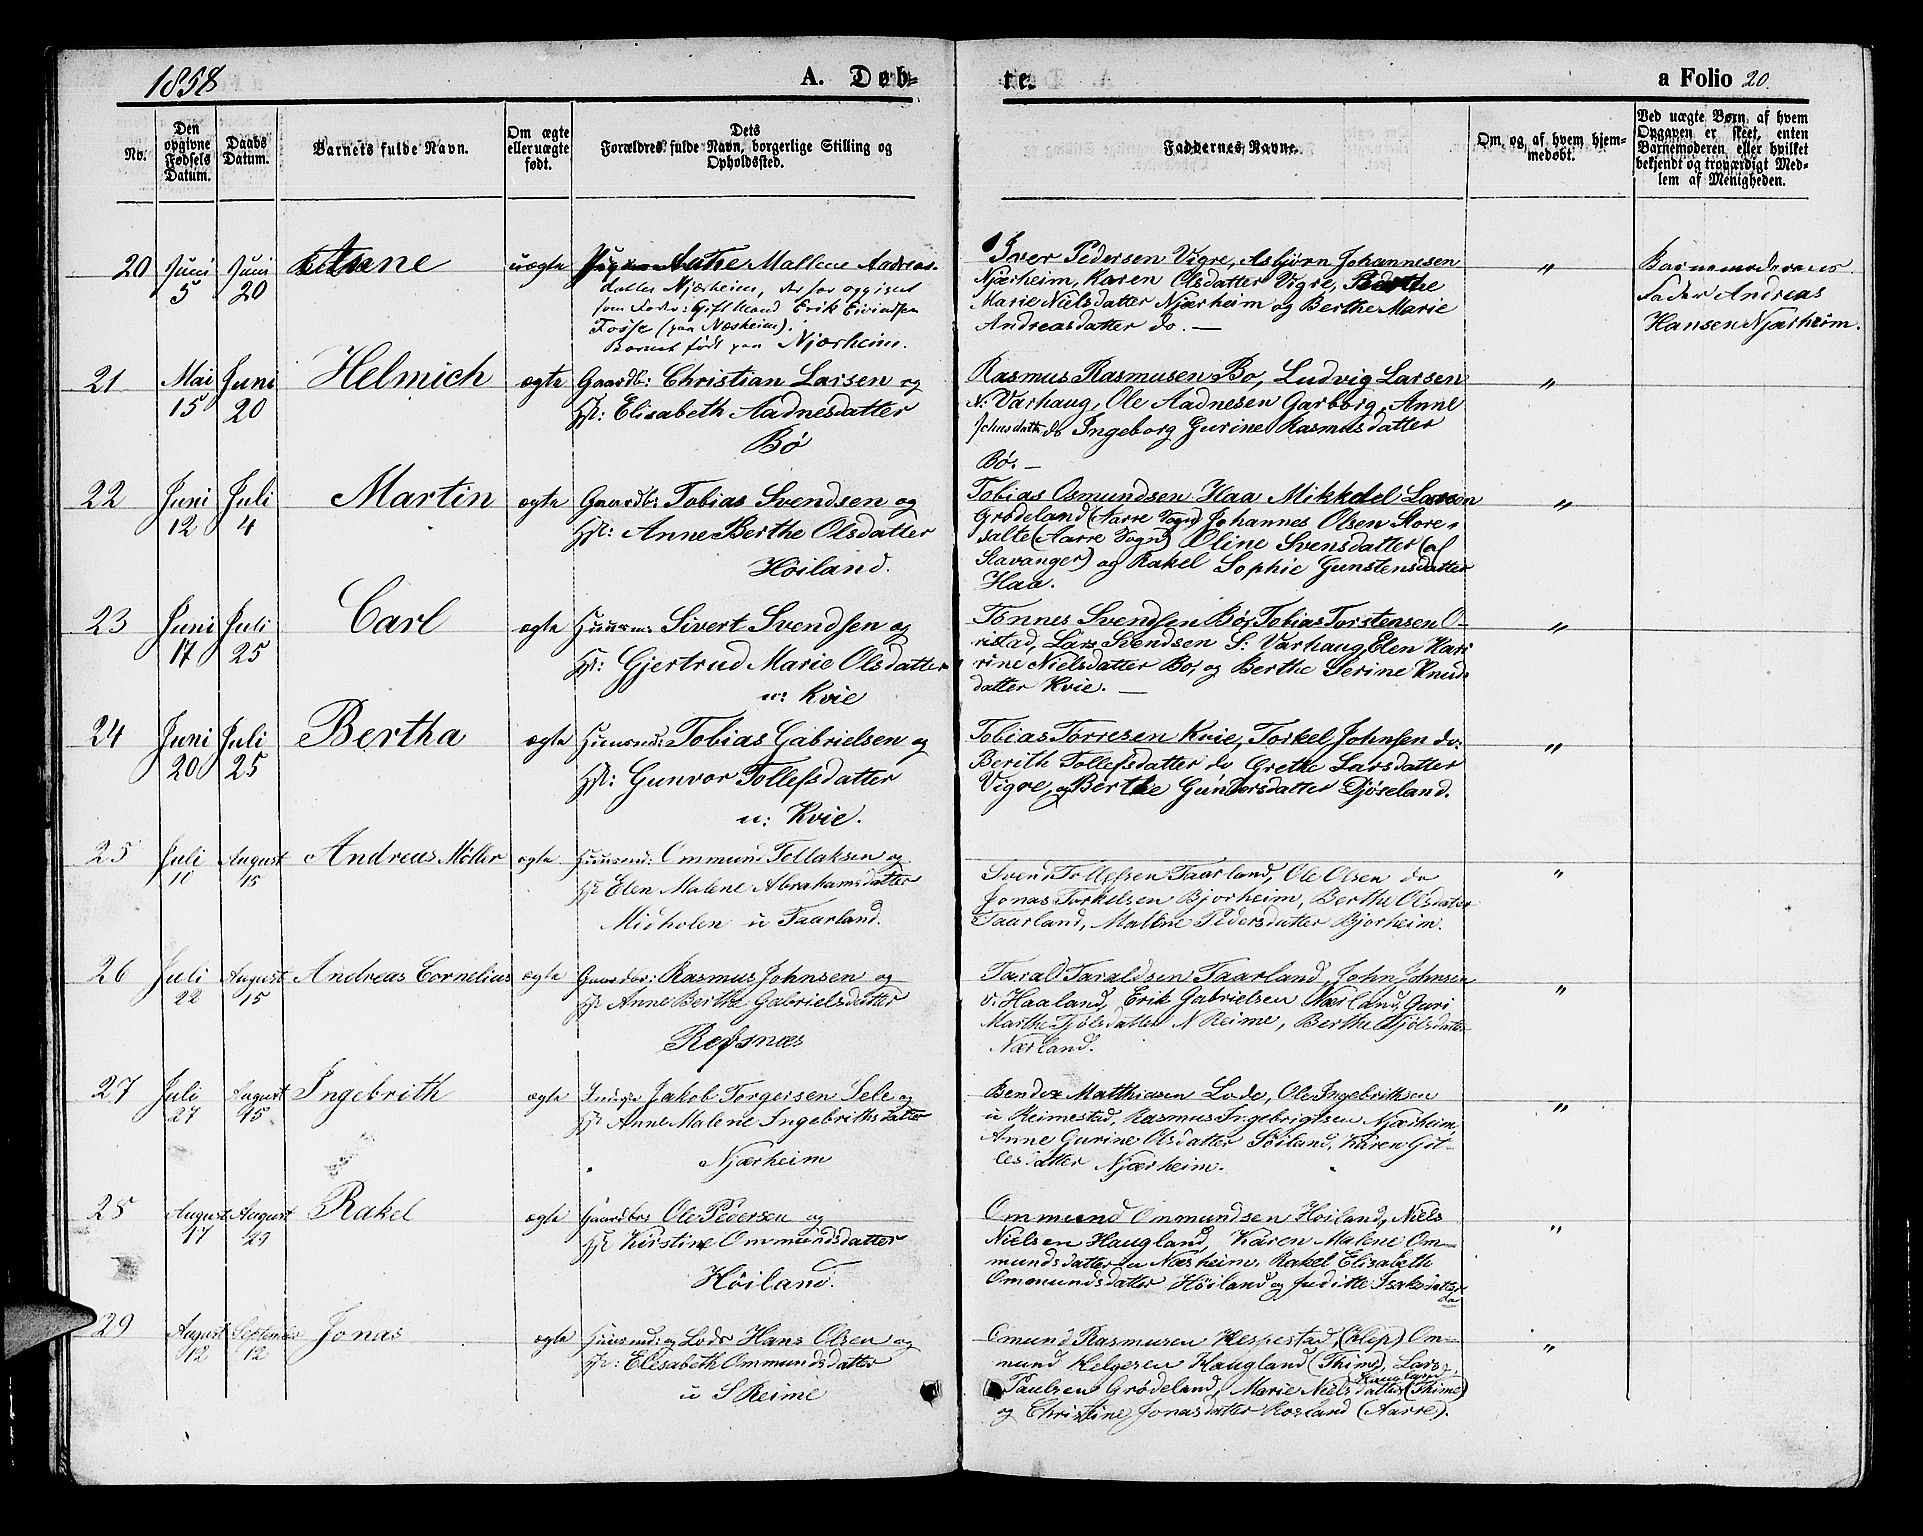 1858
A. Døb-
te.
a Folio 20.
No.
Den
opgivne
Fødsels
Datum.
Daabs
Datum.
Barnets fulde Navn.
Om ægte
eller uægte
født.
Dets
Forældres fulde Navn, borgerlige Stilling og
Opholdssted.
Faddernes Navne.
Om, og af hvem hjem-
medøbt.
Ved uægte Børn, af hvem
Opgaven er skeet, enten
Barnemoderen eller hvilket
bekjendt og troværdigt Med-
lem af Menigheden.
20 Juni 5 Juni 20 Anne uægte Anthe Mallene Andreas-
datter Njærheim, der for opgivet
som Fader: Gift Mand Erik Eivindsen
Fosse (paa Næsheim).
Barnet født paa Njærheim.
Iver Pedersen Vigre, Asbjørn Johannesen
Njærheim, Karen Olsdatter Vigre, Berthe
Marie Nielsdatter Njærheim og Berthe Marie
Andreasdatter do. —
"
Barnemoderens
Fader Andreas
Hansen Njærheim.
21 Mai 15 Juni 20 Helmich ægte Gaardb: Christian Larsen og
Hst: Elisabeth Aadnesdatter
Bø
Rasmus Rasmusen Bø, Ludvig Larsen
N: Varhaug, Ole Aadnesen Garborg, Anne
Johnsdatter do Ingeborg Gurine Rasmusdatter
Bø. —
"
22 Juni 12 Juli 4 Martin ægte Gaardb: Tobias Svendsen og
Hst: Anne Berthe Olsdatter
Høiland.
Tobias Osmundsen Haa Mikkel Larsen
Grødeland (Aarre Sogn) Johannes Olsen Store-
salte (Aarre Sogn) Oline Svensdatter (af
Stavanger) og Rakel Sophie Gunstensdatter
Haa.
"
23 Juni 17 Juli 25 Carl ægte Huusm: Sivert Svendsen og
Hst: Gjertrud Marie Olsdatter
u: Kvie
Tønnes Svendsen Bø, Tobias Torstensen O-
ristad, Lars Svendsen S: Varhaug, Elen Kari
rine Nielsdatter Bø, og Berthe Serine Knuds
datter Kvie. —
"
24 Juni 20 Juli 25 Bertha ægte Huusmd: Tobias Gabrielsen og
Hst: Gunvor Tollefsdatter
u: Kvie.
Tobias Torresen Kvie, Torkel Johnsen do:
Berith Tollefsdatter do Grethe Larsdatter
Vigre, og Berthe Gunvorsdatter Djøseland.
"
25 Juli 10 August 15 Andreas Møller ægte Huusmd: Ommund Tollaksen og
Hst Elen Malene Abrahamsdatter
Midholen u Taarland.
Svend Tollefsen Taarland, Ole Olsen do
Jonas Torkelsen Bjorheim, Berthe Olsdatter
Taarland, Malene Pedersdatter Bjorheim.
"
26 Juli 22 August 15 Andreas Cornelius ægte Gaardbr: Rasmus Johnsen og
Hst Anne Berthe Gabrielsdatter
Refsnæs
Tarald Taraldsen Taarland, John Johnsen
v: Haaland, Erik Gabrielsen Nærland, Guri
Marthe Tjølsdatter N Reime, Berthe Tjølsdatter
Nærland.
"
27 Juli 27 August 15 Ingebrith ægte Jakob Torgersen Sele og
Hst Anne Malene Ingebrithsdatter
Njærheim
Bendix Matthiasen Lode, Ole Ingebrithsen
u Reimestad, Rasmus Ingebrigtsen Njærheim,
Anne Gurine Olsdatter Søiland, Karen Git-
lesdatter Njærheim.
"
28 August 17 August 29 Rakel ægte Gaardbr Ole Pedersen og
Hst Kirstine Ommundsdatter
Høiland.
Ommund Ommundsen Høiland, Niels
Nielsen Haugland, Karen Malene Om-
mundsdatter u Næsheim. Rakel Elisabeth
Ommundsdatter Høiland og Juditte Isaksdatter
do
"
29 August 12 September 12 Jonas ægte Huusmd: og Lods Hans Olsen og
Hst: Elisabeth Ommundsdatter
u S Reime
Omund Rasmusen Hespestad, (Klep) Om-
mund Helgesen Haugland (Thime), Lars
Paulsen Grødeland, Marie Nielsdatter Haugland (Thime)
og Christine Jonasdatter Rosland (Aarre).
"